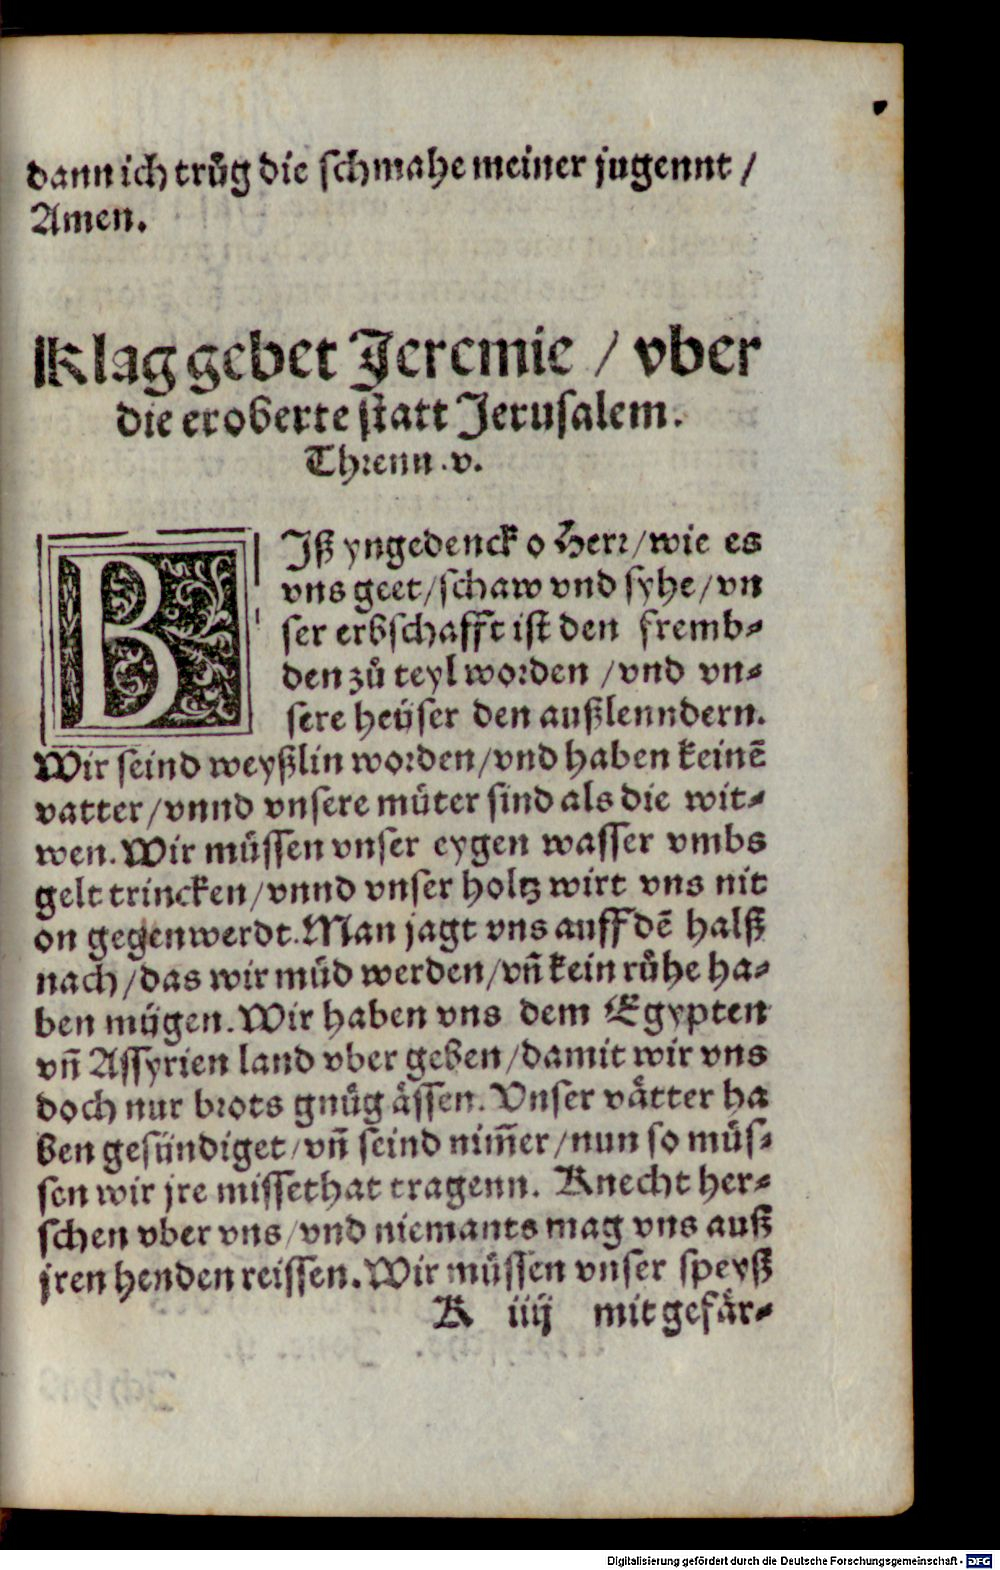 dann ich truͦg die schmahe meiner jugennt /
Amen.
Klag gebet Jeremie / vber
die eroberte statt Jerusalem.
Threnn .v.
BIß yngedenck o Herr/wie es
vns geet/schaw vnd syhe/vn
ser erbschafft ist den fremb-
den zuͦ teyl worden /vnd vn-
sere heüser den außlenndern.
Wir seind weyßlin worden/vnd haben keinē
vatter/vnnd vnsere müter sind als die wit-
wen. Wir müssen vnser eygen wasser vmbs
gelt trincken/vnnd vnser holtz wirt vns nit
on gegenwerdt. Man jagt vns auff dē halß
nach/das wir müd werden/vñ kein ruͦhe ha-
ben mügen. Wir haben vns dem Egypten
vñ Assyrien land vber geben/damit wir vns
doch nur brots gnuͦg ässen. Vnser vätter ha
ben gesündiget/vñ seind nim̃er/nun so müs-
sen wir jre missethat tragenn. Knecht her-
schen vber vns/vnd niemants mag vns auß
jren henden reissen. Wir müssen vnser speyß
K iiij mit gefär-
Digitalisierung gefördert durch die Deutsche Forschungsgemeinschaft - DFG